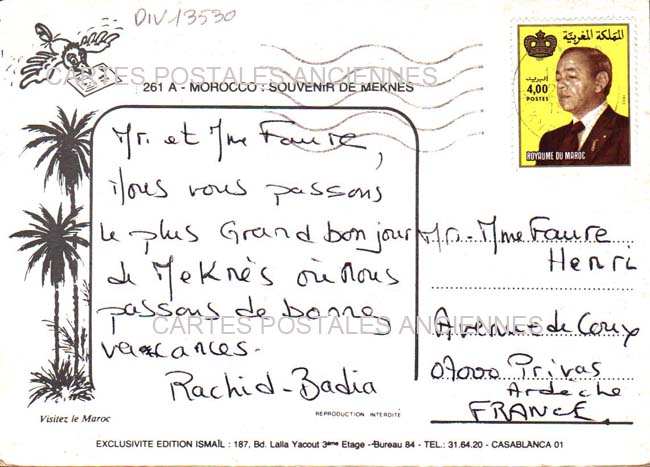 DIV13530
CARTES POSTALES ANCIENNES
261 A - MOROCCO : SOUVENIR DE MEKNES
المملكة المغربية
البريد
4,00
POSTES
ROYAUME DU MAROC
Mr. et Mme Faure,
Nous vous passons
le plus Grand bonjour
de Meknès où Nous
passons de bonnes
vacances.
Rachid-Badia
Mr. Mme Faure
Henri
Avenue de Coux
07000 Privas
Ardèche
FRANCE.
CARTES POSTALES ANCIENNES
Visitez le Maroc
REPRODUCTION INTERDITE
EXCLUSIVITE EDITION ISMAÏL : 187, Bd. Lalla Yacout 3ème Etage - Bureau 84 - TEL.: 31.64.20 - CASABLANCA 01